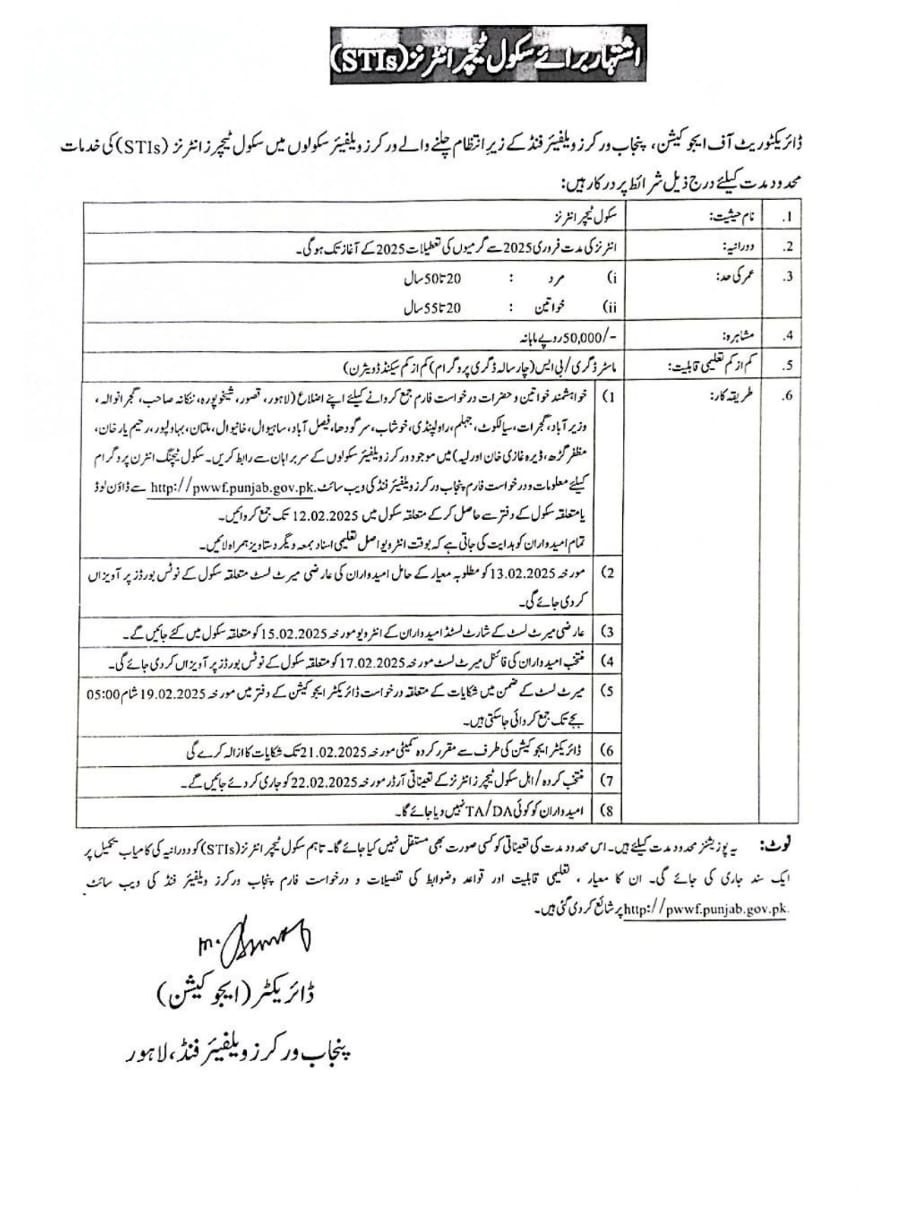 اشتہار برائے سکول ٹیچر انٹرنز (STIs)
ڈائریکٹوریٹ آف ایجوکیشن، پنجاب ورکرز ویلفیئر فنڈ کے زیر انتظام چلنے والے ورکرز ویلفیئر سکولوں میں سکول ٹیچرز انٹرنز (STIs) کی خدمات
محدود مدت کیلئے درج ذیل شرائط پر درکار ہیں:
1. نام حیثیت: سکول ٹیچر انٹرنز
2. دورانیہ: انٹرنز کی مدت فروری 2025 سے گرمیوں کی تعطیلات 2025 کے آغاز تک ہو گی۔
3. عمر کی حد: i) مرد : 20 تا 50 سال
ii) خواتین : 20 تا 55 سال
4. مشاہرہ: 50,000/- روپے ماہانہ
5. کم از کم تعلیمی قابلیت: ماسٹر ڈگری / بی ایس (چار سالہ ڈگری پروگرام) کم از کم سیکنڈ ڈویژن)
6. طریقہ کار: 1) خواہشمند خواتین و حضرات درخواست فارم جمع کروانے کیلئے اپنے اضلاع (لاہور، قصور، شیخوپورہ، ننکانہ صاحب، گجرانوالہ،
وزیر آباد، گجرات، سیالکوٹ، جہلم، راولپنڈی، خوشاب، سرگودھا، فیصل آباد، ساہیوال، خانیوال، ملتان، بہاولپور، رحیم یار خان،
مظفر گڑھ، ڈیرہ غازی خان اور لیہ) میں موجود ورکرز ویلفیئر سکولوں کے سربراہان سے رابطہ کریں۔ سکول ٹیچنگ انٹرن پروگرام
کیلئے معلومات و درخواست فارم پنجاب ورکرز ویلفیئر فنڈ کی ویب سائٹ http://pwwf.punjab.gov.pk. سے ڈاؤن لوڈ
یا متعلقہ سکول کے دفتر سے حاصل کر کے متعلقہ سکول میں 12.02.2025 تک جمع کروائیں۔
تمام امیدواران کو ہدایت کی جاتی ہے کہ بوقت انٹرویو اصل تعلیمی اسناد بمعہ دیگر دستاویز ہمراہ لائیں۔
2) مورخہ 13.02.2025 کو مطلوبہ معیار کے حامل امیدواران کی عارضی میرٹ لسٹ متعلقہ سکول کے نوٹس بورڈز پر آویزاں
کر دی جائے گی۔
3) عارضی میرٹ لسٹ کے شارٹ لسٹڈ امیدواران کے انٹرویو مورخہ 15.02.2025 کو متعلقہ سکول میں کئے جائیں گے۔
4) منتخب امیدواران کی فائنل میرٹ لسٹ مورخہ 17.02.2025 کو متعلقہ سکول کے نوٹس بورڈز پر آویزاں کر دی جائے گی۔
5) میرٹ لسٹ کے ضمن میں شکایات کے متعلقہ درخواست ڈائریکٹر ایجوکیشن کے دفتر میں مورخہ 19.02.2025 شام 05:00
بجے تک جمع کروائی جا سکتی ہیں۔
6) ڈائریکٹر ایجوکیشن کی طرف سے مقرر کردہ کمیٹی مورخہ 21.02.2025 تک شکایات کا ازالہ کرے گی
7) منتخب کردہ / اہل سکول ٹیچرز انٹرنز کے تعیناتی آرڈر مورخہ 22.02.2025 کو جاری کر دئے جائیں گے۔
8) امیدواران کو کوئی TA/DA نہیں دیا جائے گا۔
نوٹ: یہ پوزیشنز محدود مدت کیلئے ہیں۔ اس محدود مدت کی تعیناتی کو کسی صورت بھی مستقل نہیں کیا جائے گا۔ تاہم سکول ٹیچر انٹرنز (STIs) کو دورانیہ کی کامیاب تکمیل پر
ایک سند جاری کی جائے گی۔ ان کا معیار، تعلیمی قابلیت اور قواعد و ضوابط کی تفصیلات و درخواست فارم پنجاب ورکرز ویلفیئر فنڈ کی ویب سائٹ
http://pwwf.punjab.gov.pk. پر شائع کر دی گئی ہیں۔
ڈائریکٹر (ایجوکیشن)
پنجاب ورکرز ویلفیئر فنڈ، لاہور